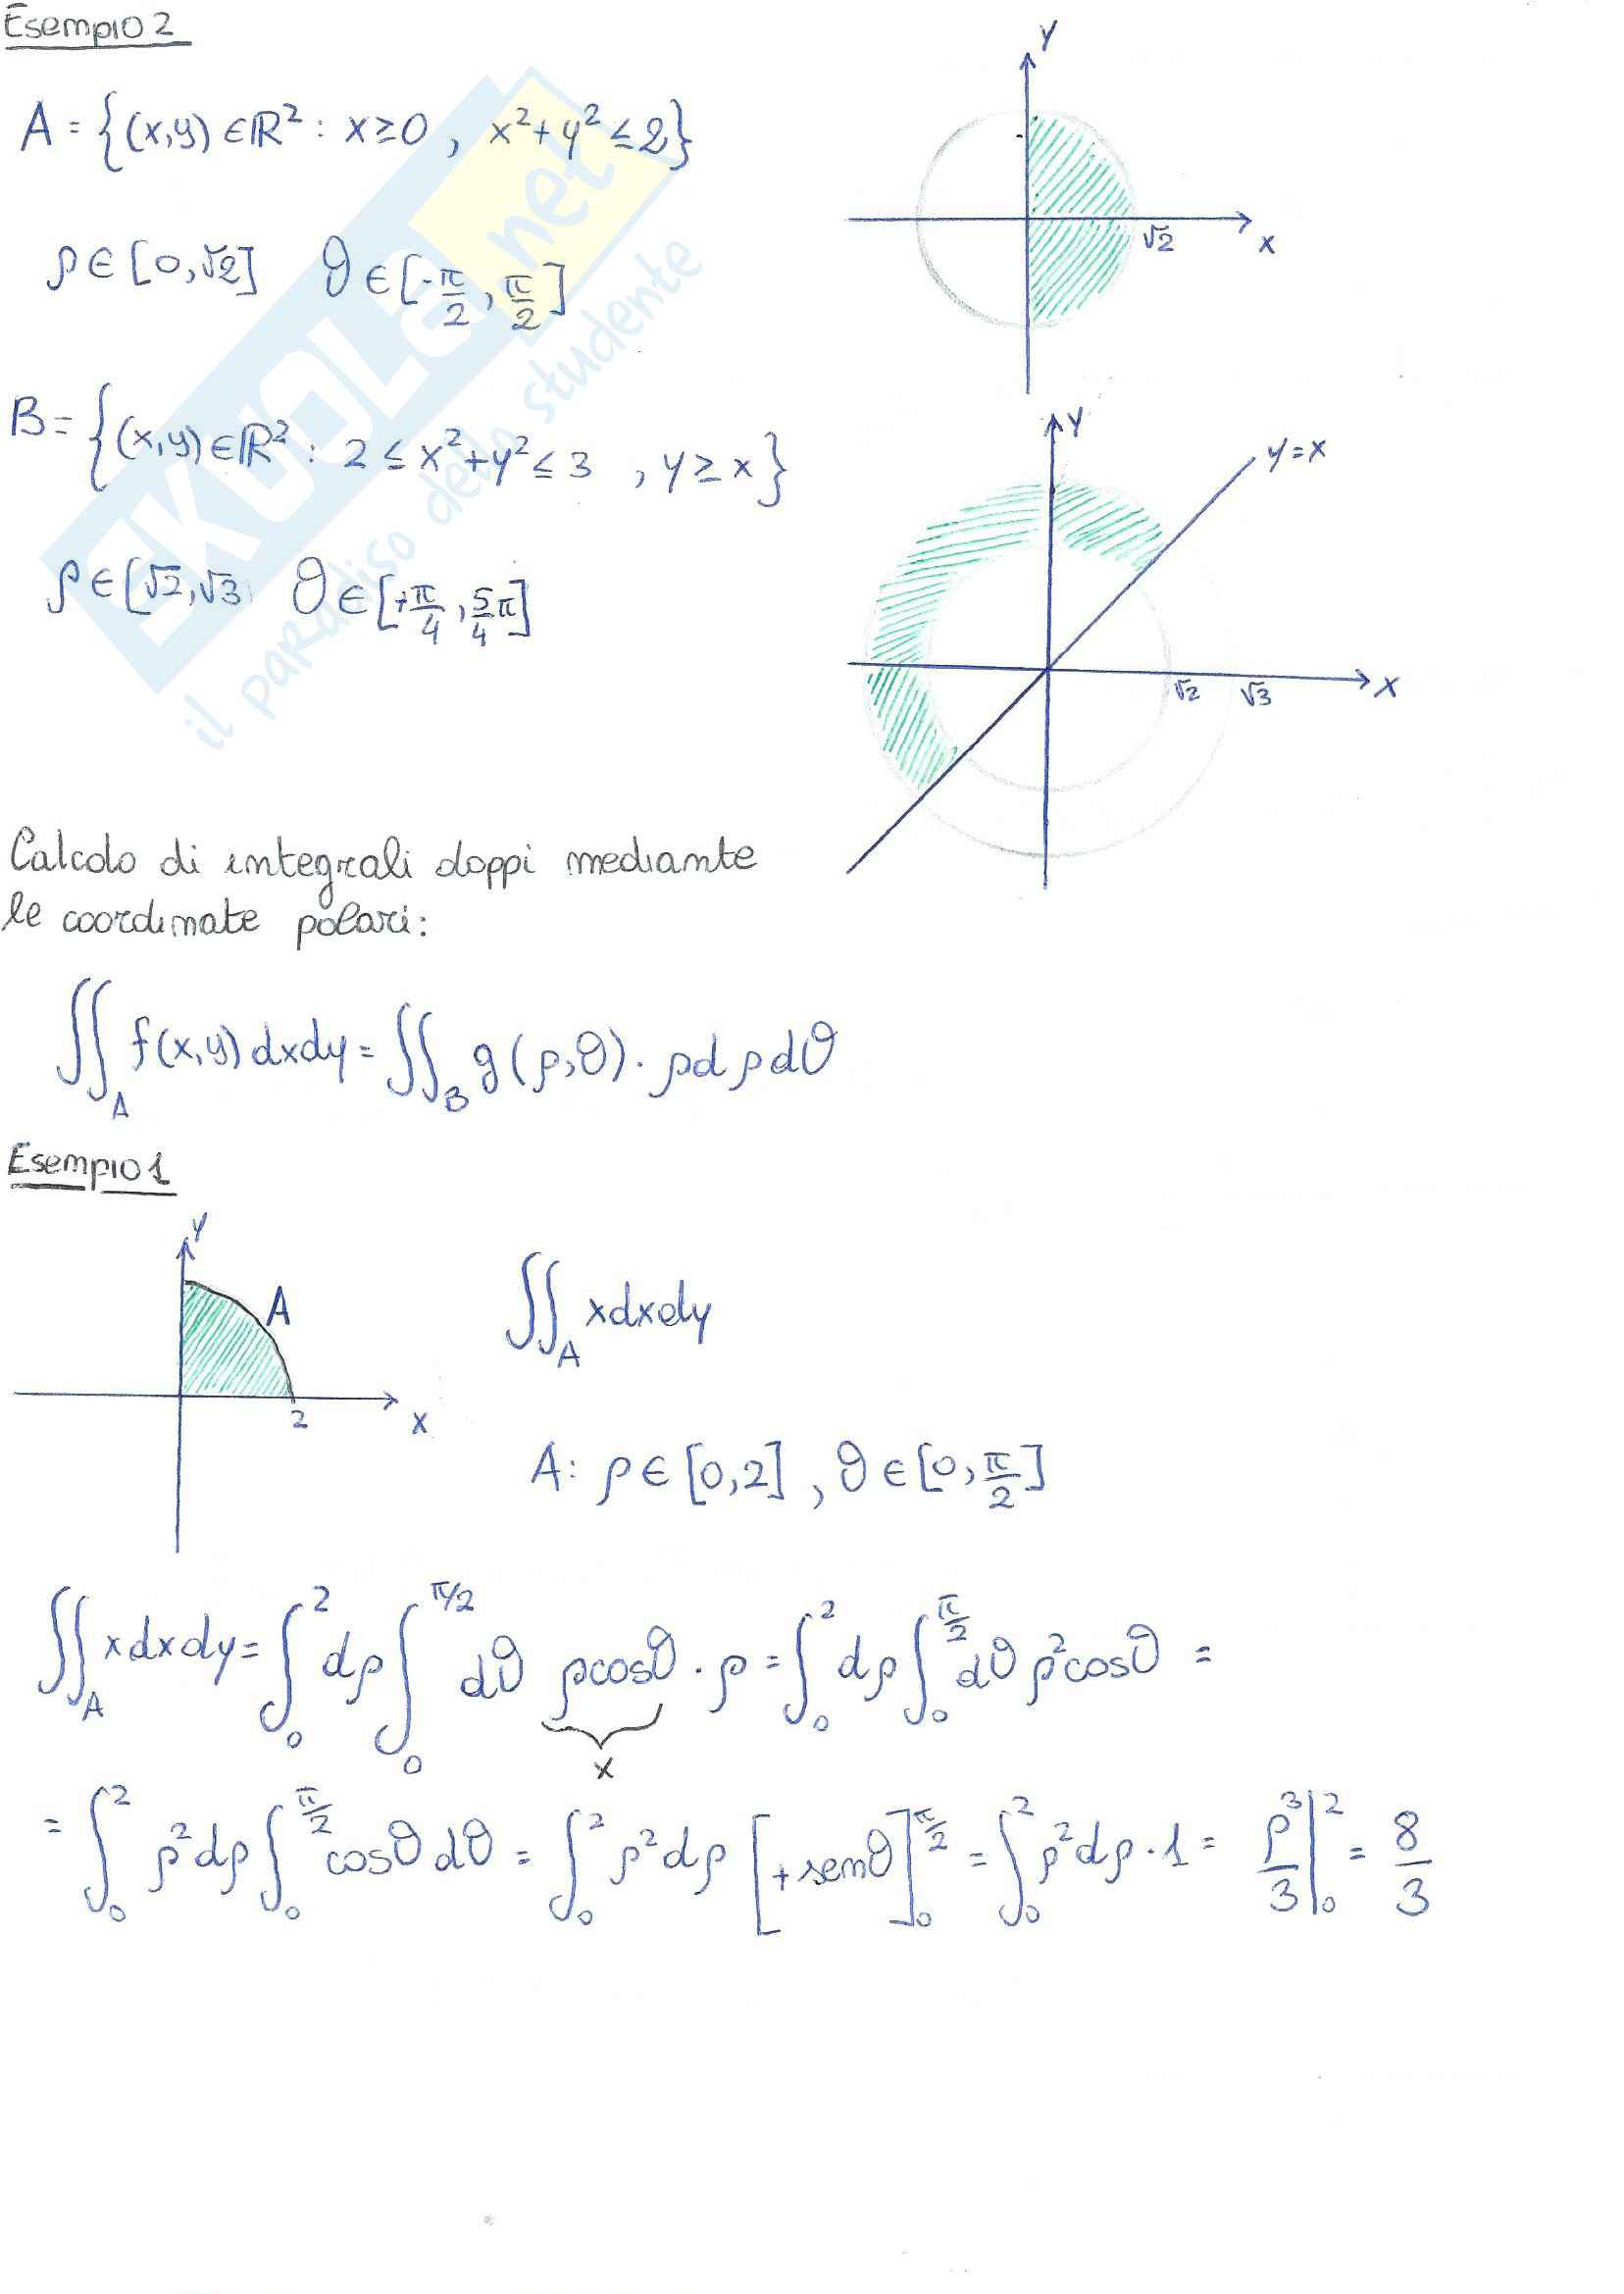 Esempio 2
A = {(x,y) ∈ ℝ² : x ≥ 0 , x² + y² ≤ 2}
ρ ∈ [0, √2] ϑ ∈ [-π/2 , π/2]
Y
√2
x
B = {(x,y) ∈ ℝ² : 2 ≤ x² + y² ≤ 3 , y ≥ x}
ρ ∈ [√2, √3 ϑ ∈ [+π/4 , 5/4 π]
Y
y = x
√2 √3
X
SKUOLA.net
il paradiso dello studente
Calcolo di integrali doppi mediante
le coordinate polari:
∬_A f(x,y) dxdy = ∬_B g(ρ,ϑ) · ρ dρ dϑ
Esempio 1
Y
A
2
X
∬_A x dx dy
A: ρ ∈ [0,2] , ϑ ∈ [0, π/2]
∬_A x dx dy = ∫_0^2 dρ ∫_0^{π/2} dϑ ρcosϑ · ρ = ∫_0^2 dρ ∫_0^{π/2} dϑ ρ² cosϑ =
x
= ∫_0^2 ρ² dρ ∫_0^{π/2} cosϑ dϑ = ∫_0^2 ρ² dρ [+senϑ]_0^{π/2} = ∫_0^2 ρ² dρ · 1 = ρ³/3 |_0^2 = 8/3